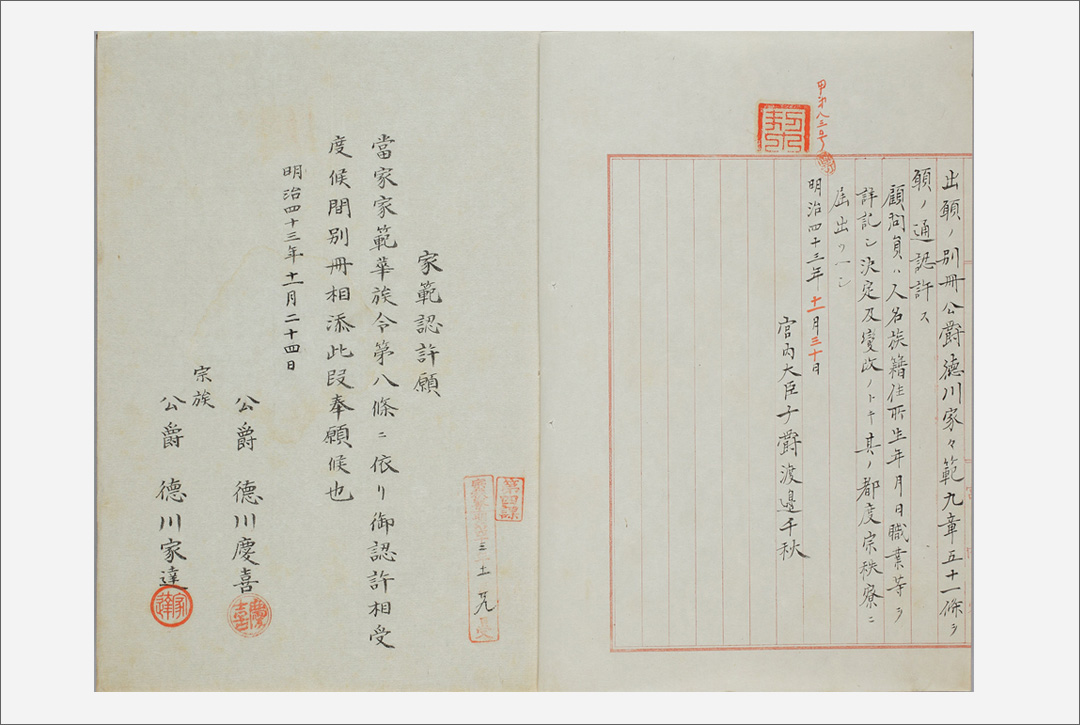 甲第八三号
出願ノ別冊公爵徳川家々範九章五十一條ヲ
願ノ通認許ス
顧問員ハ人名族籍住所生年月日職業等ヲ
詳記シ決定及變改ノトキ其ノ都度宗秩寮ニ
届出ツヘシ
明治四十三年十一月三十日
宮内大臣子爵渡邉千秋
第四課
家範認許願
當家家範華族令第八條ニ依リ御認許相受
度候間別冊相添此段奉願候也
明治四十三年十一月二十四日
公爵 徳川慶喜
慶喜
宗族
公爵 徳川家達
家達